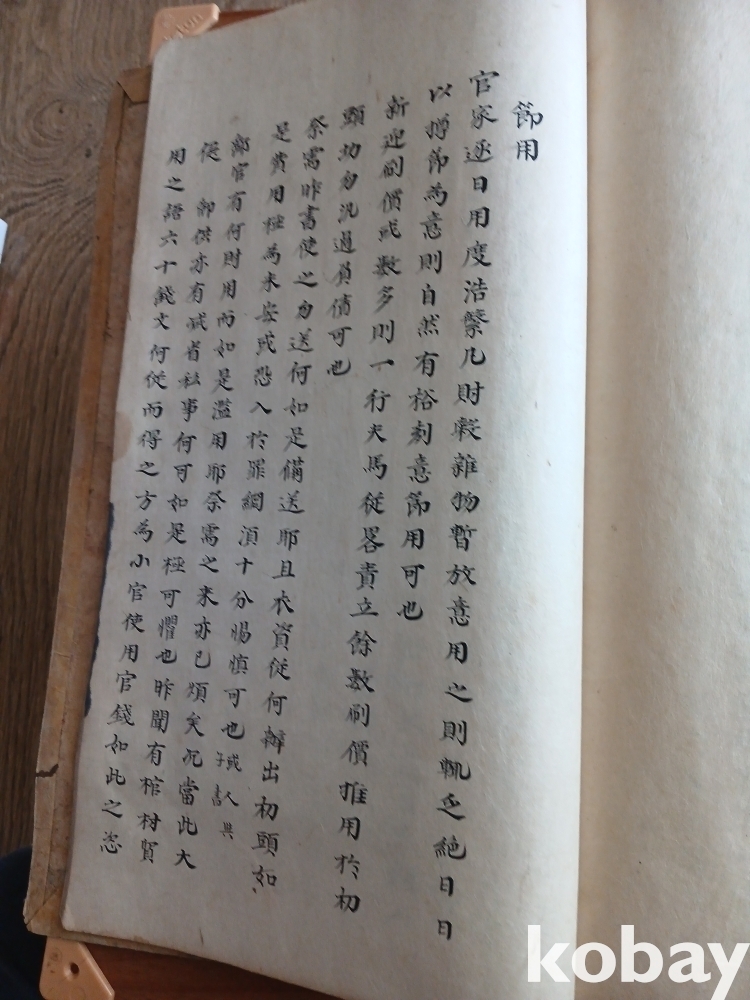 節用
官家逐日用度浩繁凡財穀雜物暫放意用之則輒乏絶日日
以撙節為意則自然有裕刻意節用可也
新迎刷價或數多則一行夫馬從畧責立餘數刷價推用於初
頭切勿汎過負債可也
祭需昨書使之勿送何如是備送耶且衣資從何辦出初頭如
是費用極為未安或恐入於罪網須十分惕慎可也或人與子書
鄰官有何財用而如是濫用耶祭需之來亦已煩矣况當此大
從 御供亦有减省私事何可如是極可懼也昨聞有棺材貿
用之語六十錢文何從而得之方為小官使用官錢如此之恣
kobay